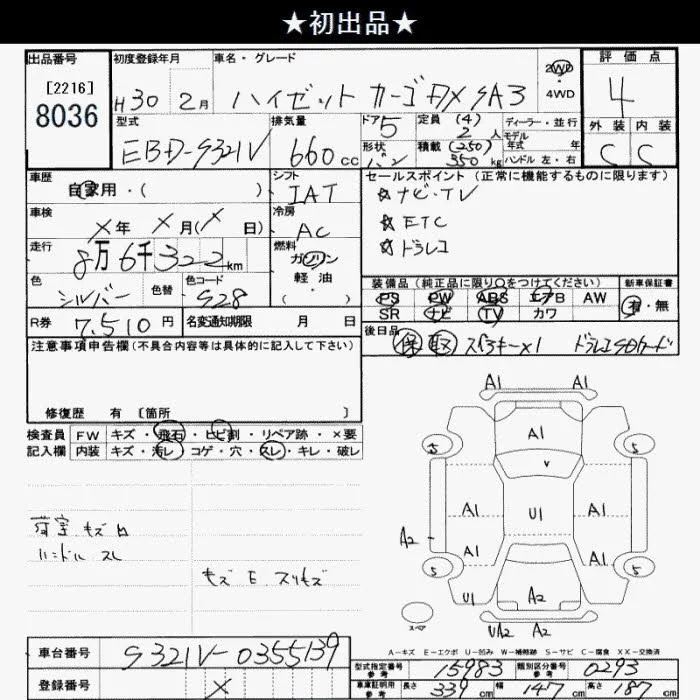 ★初出品★
出品番号 初度登録年月 車名・グレード 2WD ・ 4WD 評価点
[2216]
8036
H30 2月 ハイゼット カーゴ DX SA3 4
型式 排気量 ドア 定員 (4) ディーラー・並行 外装 内装
EBD-S321V 660cc 5 2人 モデル 年式 年 C C
形状 バン 積載 (250) 350kg ハンドル 左・右
車歴 自家用・( ) シフト IAT セールスポイント (正常に機能するものに限ります)
☆ナビ・TV
車検 X年 X月(X日) 冷房 AC ☆ETC
走行 8万6千322km 燃料 ガソリン・軽油・( ) ☆ドラレコ
色 シルバー 色替 色コード S28 装備品 (純正品に限り○をつけてください) 新車保証書
PS PW ABS エアB AW 有・無
SR ナビ TV カワ
R券 7,510円 名変通知期限 月 日 後日品 保 取 スペアキー×1 ドラレコSDカード
注意事項申告欄(不具合内容等は具体的に記入して下さい)
修復歴 有 〔箇所 〕
検査員 FW キズ・飛石・ヒビ割・リペア跡・×要
記入欄 内装 キズ・汚レ・コゲ・穴・スレ・キレ・破レ
荷室 キズ 凹
ハンドル スレ
キズ E スリキズ
A1 A1
A1
5 5
A1 U1 A1
A2 A1 A1
5 5
U1 A2
スペア UA2 A2
A-キズ E-エクボ U-凹み W-補修跡 S-サビ C-腐食 XX-交換済
車台番号 S321V-0355139
型式指定番号 参考 15983 類別区分番号 参考 0293
登録番号 X
車庫証明用 参考 長さ 339cm 幅 147cm 高さ 187cm